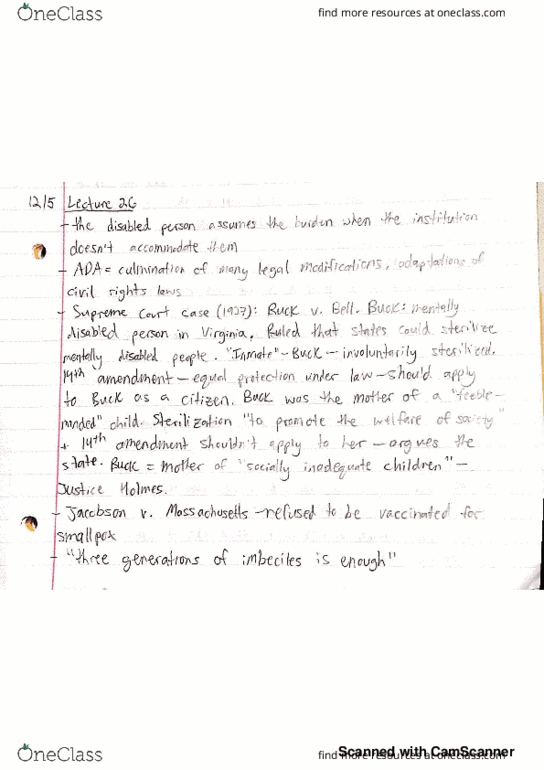 OneClass
find more resources at oneclass.com
12/5 Lecture 26
- the disabled person assumes the burden when the institution
doesn't accommodate them
- ADA = culmination of many legal modifications, adaptations of
civil rights laws
- Supreme Court case (1927): Buck v. Bell. Buck: mentally
disabled person in Virginia. Ruled that states could sterilize
mentally disabled people. "Inmate" - Buck - involuntarily sterilized.
14th amendment - equal protection under law - should apply
to Buck as a citizen. Buck was the mother of a "feeble-
minded" child. Sterilization "to promote the welfare of society"
+ 14th amendment shouldn't apply to her - argues the
state. Buck = mother of "socially inadequate children" -
Justice Holmes.
- Jacobson v. Massachusetts - refused to be vaccinated for
smallpox
- "three generations of imbeciles is enough"
Scanned with CamScanner
OneClass
find more resources at oneclass.com